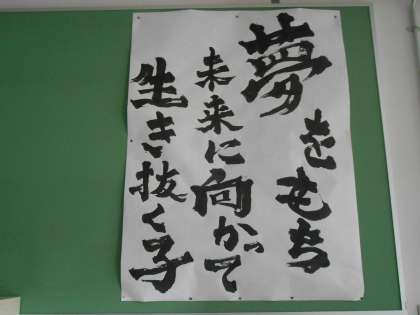 夢をもち
未来に向かって
生き抜く子